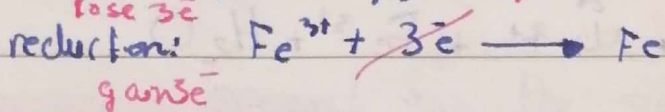 lose 3e⁻
reduction: Fe³⁺ + 3e⁻ ⟶ Fe
gain3e⁻